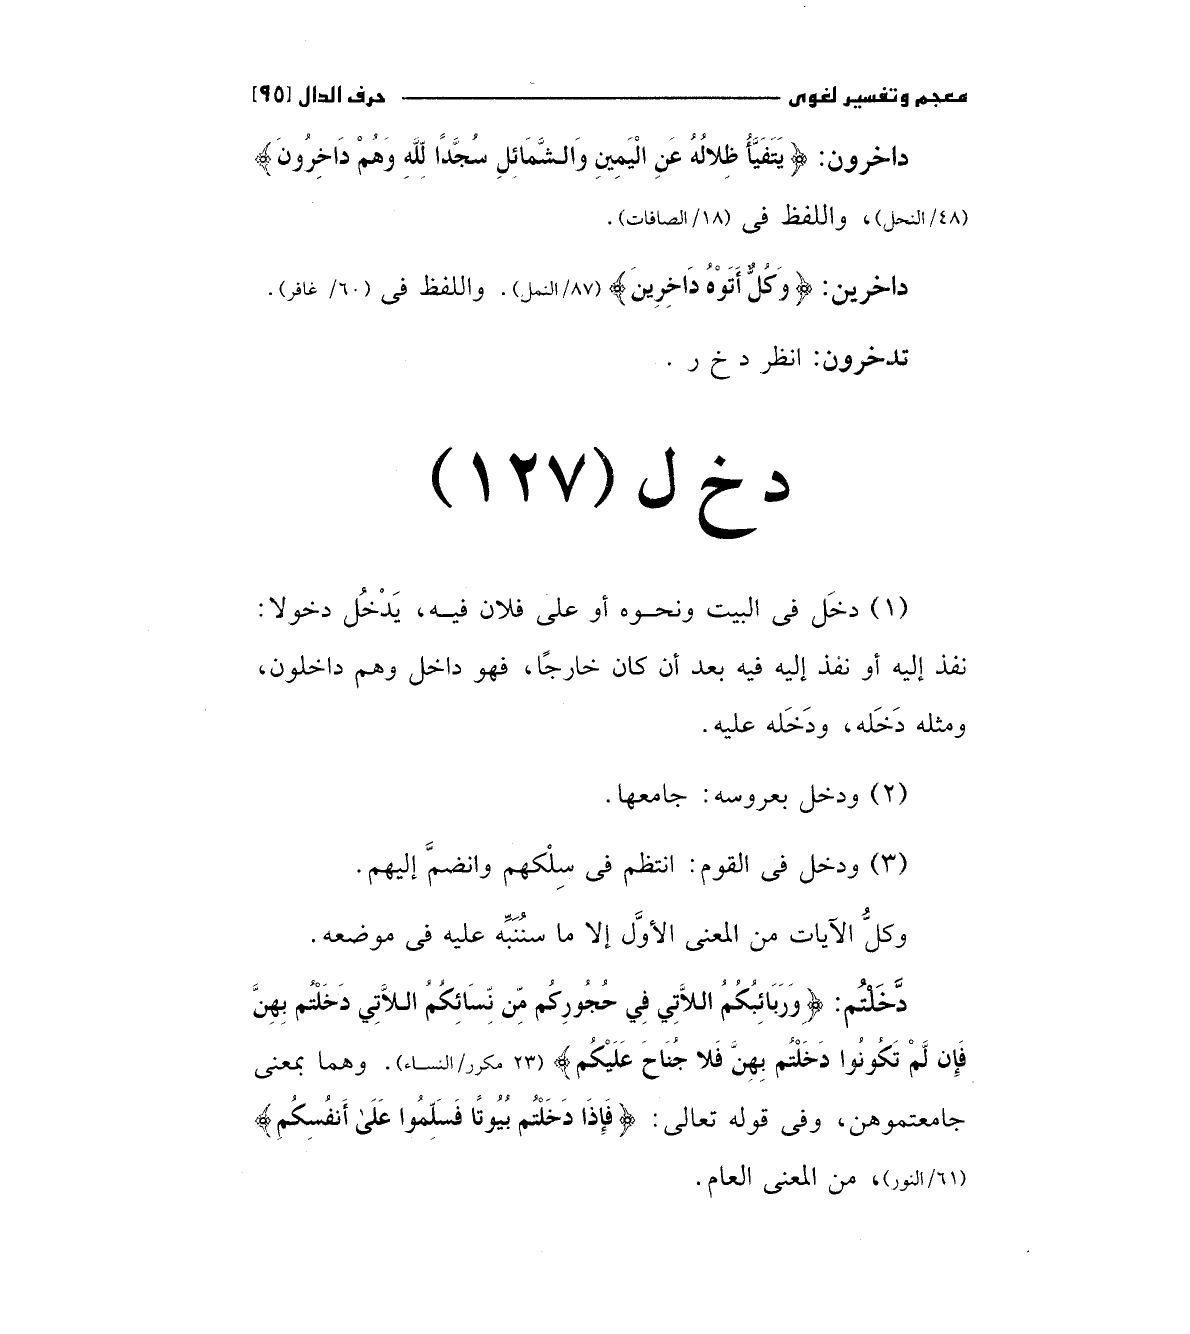 معجم وتفسير لغوى ــــــــــــ حرف الدال [٩٥]
داخرون: ﴿يَتَفَيَّأُ ظِلالُهُ عَنِ الْيَمِينِ وَالشَّمَائِلِ سُجَّدًا لِّلَّهِ وَهُمْ دَاخِرُونَ﴾
(٤٨/النحل)، واللفظ فى (١٨/الصافات).
داخرين: ﴿وَكُلٌّ أَتَوْهُ دَاخِرِينَ﴾ (٨٧/النمل). واللفظ فى (٦٠/ غافر).
تدخرون: انظر د خ ر .
د خ ل (١٢٧)
(١) دخَل فى البيت ونحوه أو على فلان فيه، يَدْخُل دخولا:
نفذ إليه أو نفذ إليه فيه بعد أن كان خارجًا، فهو داخل وهم داخلون،
ومثله دَخَله، ودَخَله عليه.
(٢) ودخل بعروسه: جامعها.
(٣) ودخل فى القوم: انتظم فى سِلْكهم وانضمَّ إليهم.
وكلُّ الآيات من المعنى الأوَّل إلا ما سنُنَبِّه عليه فى موضعه.
دَّخَلْتُم: ﴿وَرَبَائِبُكُمُ اللاَّتِي فِي حُجُورِكُم مِّن نِّسَائِكُمُ اللاَّتِي دَخَلْتُم بِهِنَّ
فَإِن لَّمْ تَكُونُوا دَخَلْتُم بِهِنَّ فَلا جُنَاحَ عَلَيْكُم﴾ (٢٣ مكرر/النساء). وهما بمعنى
جامعتموهن، وفى قوله تعالى: ﴿فَإِذَا دَخَلْتُم بُيُوتًا فَسَلِّمُوا عَلَىٰ أَنفُسِكُمِ﴾
(٦١/النور)، من المعنى العام.